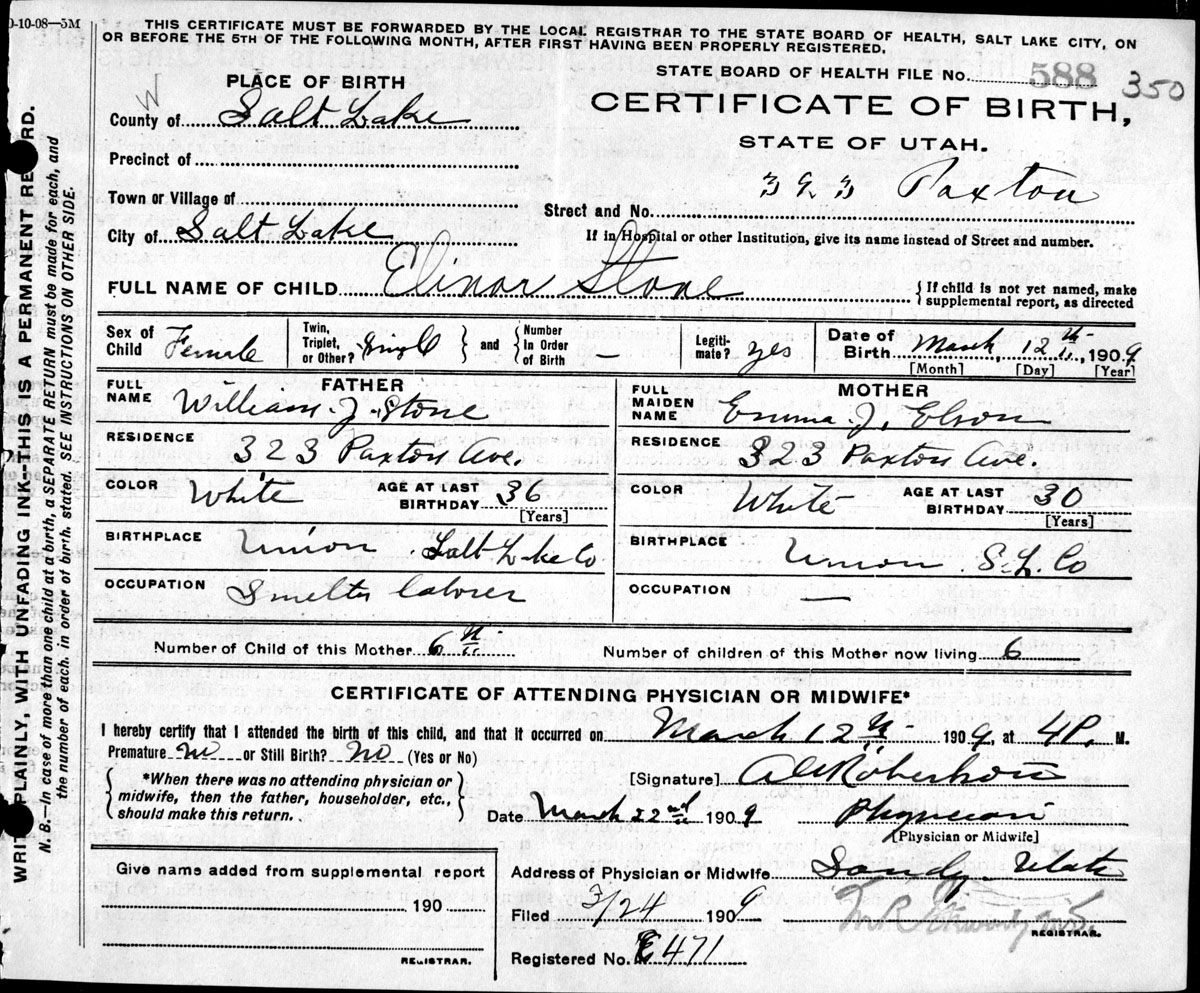 0-10-08—5M
THIS CERTIFICATE MUST BE FORWARDED BY THE LOCAL REGISTRAR TO THE STATE BOARD OF HEALTH, SALT LAKE CITY, ON
OR BEFORE THE 5TH OF THE FOLLOWING MONTH, AFTER FIRST HAVING BEEN PROPERLY REGISTERED.
WRITE PLAINLY, WITH UNFADING INK—THIS IS A PERMANENT RECORD.
N. B.—In case of more than one child at a birth, a SEPARATE RETURN must be made for each, and
the number of each, in order of birth, stated. SEE INSTRUCTIONS ON OTHER SIDE.
STATE BOARD OF HEALTH FILE No. 588 350
CERTIFICATE OF BIRTH,
STATE OF UTAH.
PLACE OF BIRTH
W
County of Salt Lake
Precinct of
Town or Village of
City of Salt Lake
Street and No. 323 Paxton
If in Hospital or other Institution, give its name instead of Street and number.
FULL NAME OF CHILD Elinor Stone { If child is not yet named, make
supplemental report, as directed
Sex of Child Female
Twin, Triplet, or Other? Single } and { Number In Order of Birth —
Legiti-mate? yes
Date of Birth March, 12th, 1909
[Month] [Day] [Year]
FATHER
FULL NAME William J. Stone
RESIDENCE 323 Paxton Ave.
COLOR White AGE AT LAST BIRTHDAY 36
[Years]
BIRTHPLACE Union. Salt Lake Co
OCCUPATION Smelter laborer
MOTHER
FULL MAIDEN NAME Emma J. Elson
RESIDENCE 323 Paxton Ave.
COLOR White AGE AT LAST BIRTHDAY 30
[Years]
BIRTHPLACE Union S. L. Co
OCCUPATION —
Number of Child of this Mother 6th Number of children of this Mother now living 6
CERTIFICATE OF ATTENDING PHYSICIAN OR MIDWIFE*
I hereby certify that I attended the birth of this child, and that it occurred on March 12th 1909, at 4P. M.
Premature no or Still Birth? No (Yes or No)
{ *When there was no attending physician or
midwife, then the father, householder, etc.,
should make this return. }
[Signature] Roberhson
Date March 22nd 1909 Physician
[Physician or Midwife]
Address of Physician or Midwife Sandy Utah
Filed 3/24 1909
REGISTRAR.
Registered No. 471
Give name added from supplemental report
190
REGISTRAR.